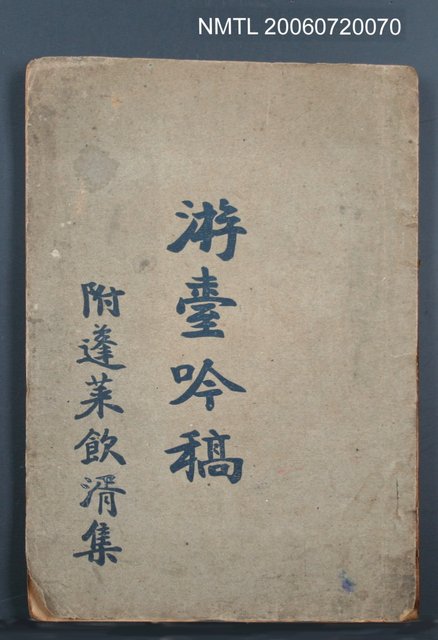 NMTL 20060720070
游臺吟稿
附蓬萊飲湑集